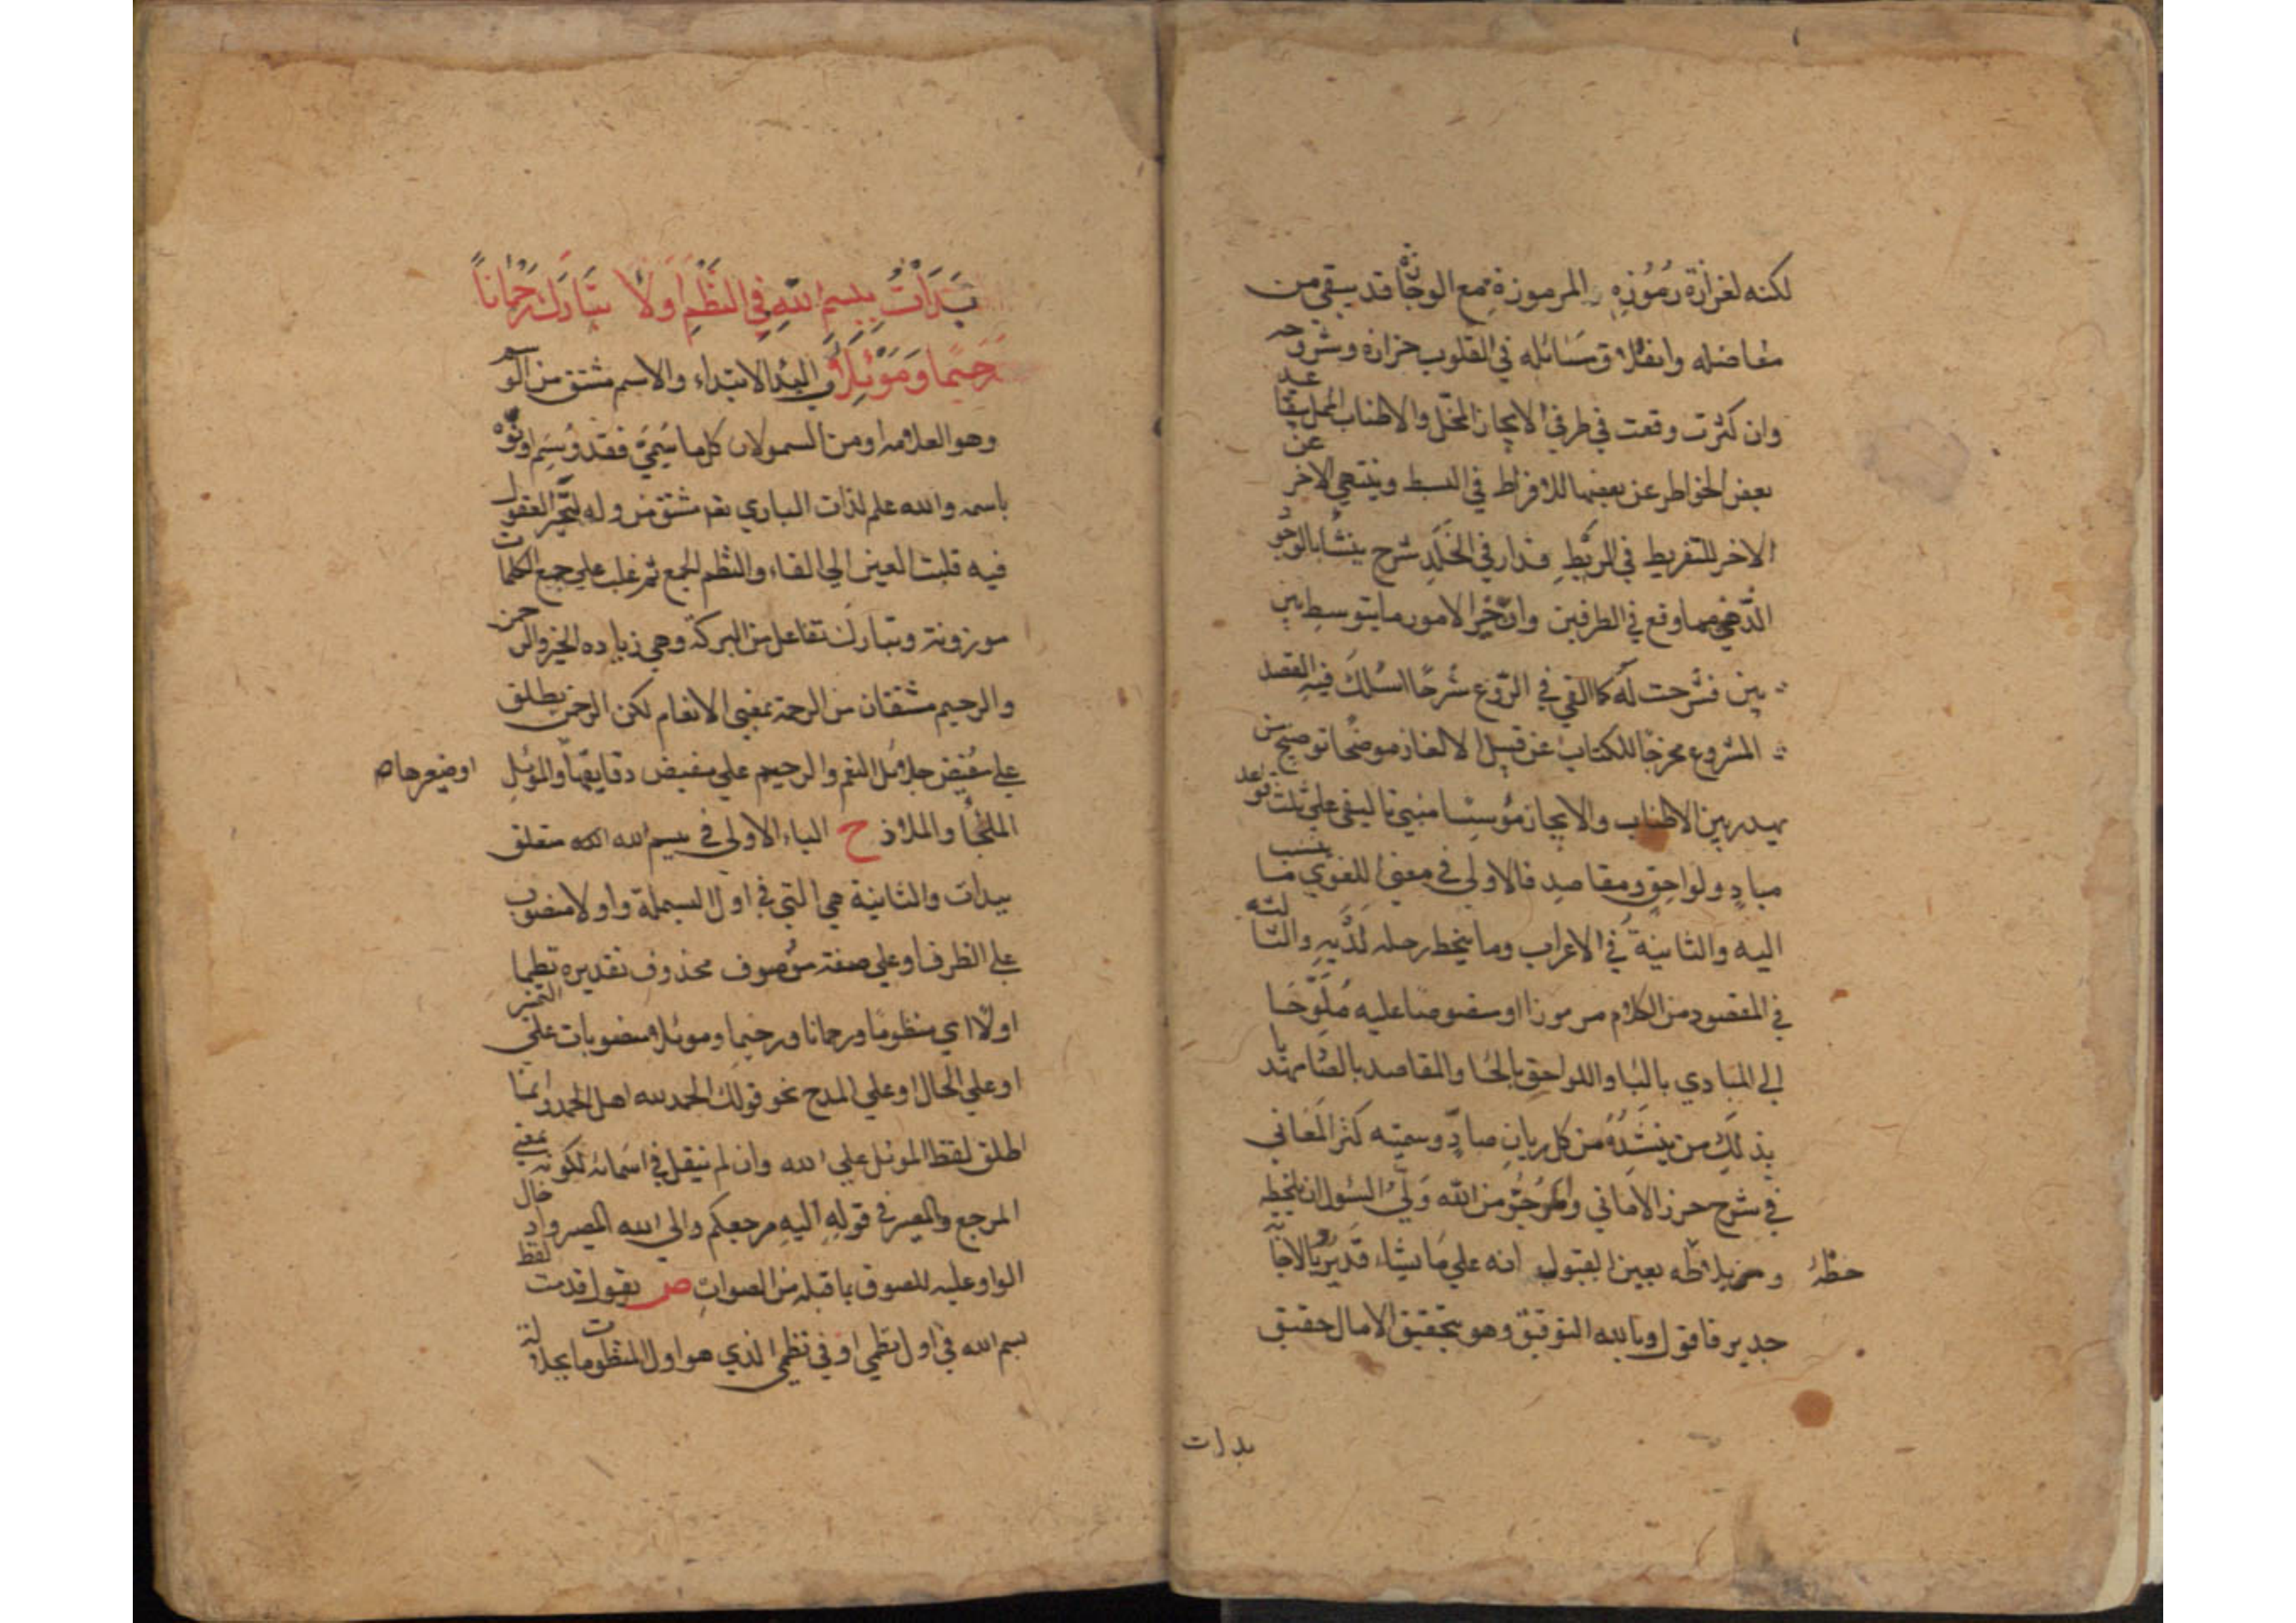 لكنه لغزارة رموزه المرموزة مع الوجازة قد يبقى من
مفاضله وانغلاق مسائله في القلوب حزازة وشروحه
وان كثرت وقعت في طرفي الايجاز المخل والاطناب الممل يتقاعد
بعض الخواطر عن بعضها للافراط في البسط وينتهي الاخر عن
الاخر للتفريط في الربط فدار في الخلد شرح ينشا بالوجوه
الذهبي مما وقع في الطرفين وان خير الامور ما يتوسط بين
بين فشرحت له كما القي في الروع شرحا اسلك فيه القصد
المشروع مخرجا للكتاب عن قبيل الالغاز موضحا توضيح من
يهدر بين الاطناب والايجاز مؤسسا مبنى تاليفي على ثلث قواعد
مباد ولواحق ومقاصد فالاولى في معنى اللغوي ما ينسب
اليه والثانية في الاعراب وما ينخط رحله لديه والثالثه
في المقصود من الكلام مرموزا او منصوصا عليه ملوحا
الى المبادي بالبا واللواحق بالحا والمقاصد بالصاد يا تهتد
بذلك من ينشده من كل ريان صاد وسميته كنز المعاني
في شرح حرز الاماني والمرجو من الله ولي السؤل ان يلحظه
حظه و يلاحظه بعين القبول انه على ما يشاء قدير وبالاجابة
جدير فاقول وبالله التوفيق وهو بتحقيق الامال حقيق
بدات
بَدَأْتُ بِبِسْمِ اللهِ فِي النَّظْمِ اَوَّلَا تَبَارَكَ رَحْمَاناً
رَحِيمًا وَمَوْئِلَا ب البدا الابتداء والاسم مشتق من الوسم
وهو العلامه او من السمو لان كل ما سمي فقد وسم او نوه
باسمه والله علم لذات الباري تعا مشتق من وله لتحير العقول
فيه قلبت العين الى الفاء والنظم الجمع ثم غلب على جمع الكلمات
موزونة وتبارك تفاعل من البركة وهي زياده الخير والرحمن
والرحيم مشتقان من الرحمة بمعنى الانعام لكن الرحمن يطلق
على مفيض جلائل النعم والرحيم على مفيض دقايقها والموئل
الملجأ والملاذ ح الباء الاولى في بسم الله متعلق
ببدات والثانية هي التي في اول البسملة واولا منصوب
على الظرف او على صفة موصوف محذوف تقديره نظما
اولا اي منظوما ورحمانا ورحيما وموئلا منصوبات على التمييز
او على الحال او على المدح نحو قولك الحمد لله اهل الحمد وانما
اطلق لفظ الموئل على الله وان لم ينقل في اسمائه لكونه بمعنى
المرجع والمصير في قوله اليه مرجعكم والى الله المصير واد خال
الواو عليه للصوق باقبله من الصوات ص يقول قدمت لفظ
بسم الله في اول نظمي او في نظمي الذي هو اول المنظومات